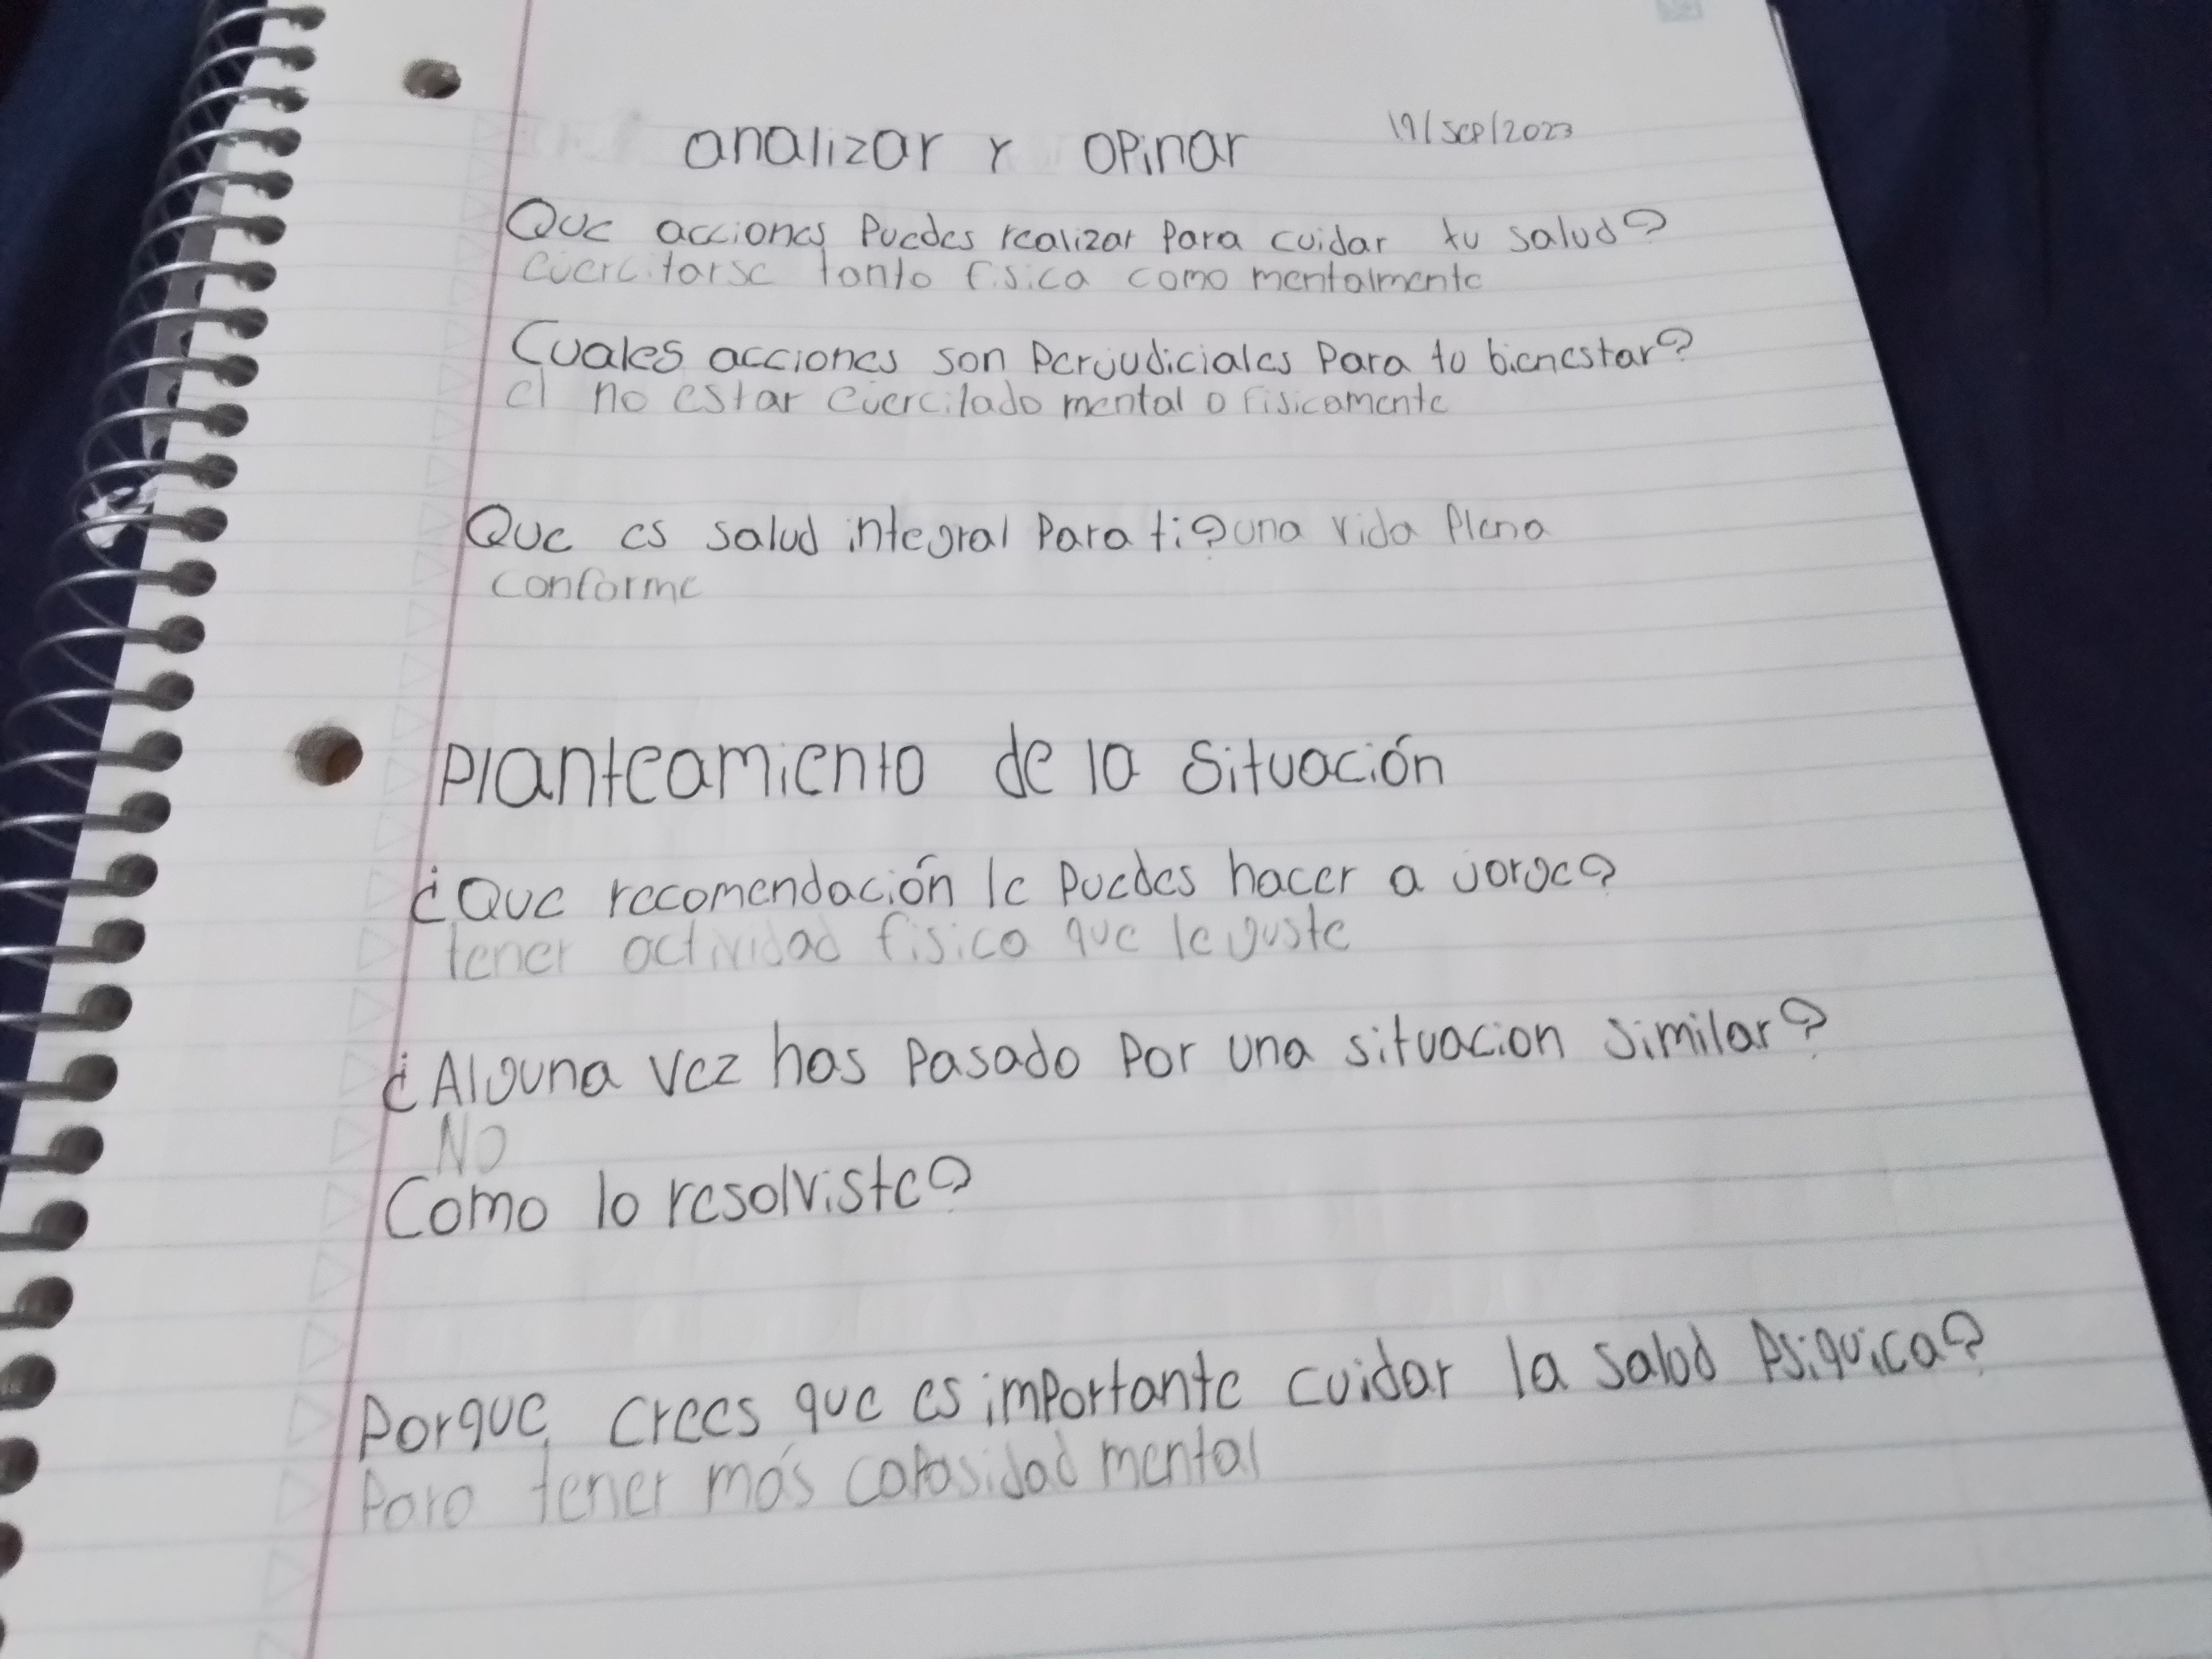 analizar y opinar 19/sep/2023
Que acciones puedes realizar para cuidar tu salud?
ejercitarse tanto fisica como mentalmente
Cuales acciones son perjudiciales para tu bienestar?
el no estar ejercitado mental o fisicamente
Que es salud integral para ti? una vida plena
conforme
Planteamiento de la situación
¿Que recomendación le puedes hacer a jorge?
tener actividad fisico que le guste
¿Alguna vez has pasado por una situacion similar?
NO
Como lo resolviste?
Porque crees que es importante cuidar la salud psiquica?
Para tener más capasidad mental